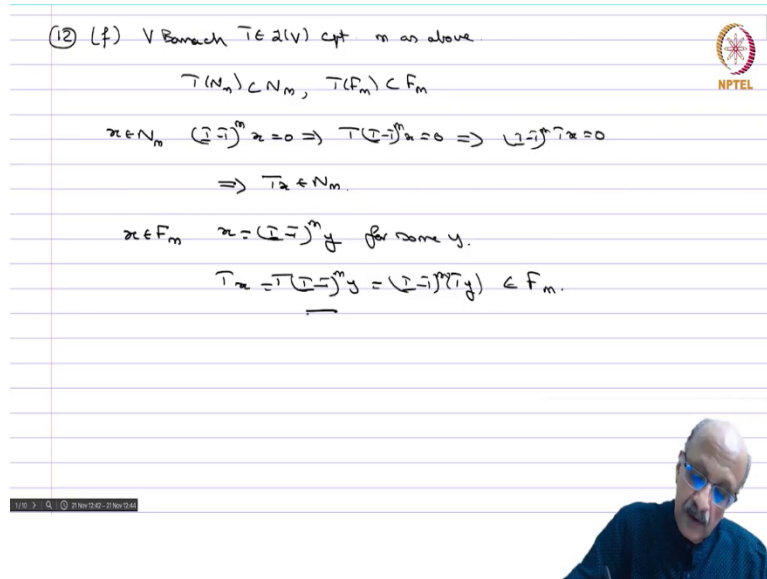 (12) (f) V Banach T ∈ L(V) cpt. m as above.
NPTEL
T(Nₘ) ⊂ Nₘ, T(Fₘ) ⊂ Fₘ
x ∈ Nₘ (I-T)ᵐ x = 0 ⇒ T(I-T)ᵐ x = 0 ⇒ (I-T)ᵐ Tx = 0
⇒ Tx ∈ Nₘ.
x ∈ Fₘ x = (I-T)ᵐ y for some y.
Tx = T(I-T)ᵐ y = (I-T)ᵐ(Ty) ∈ Fₘ.
1/10 21 Nov 12:42 - 21 Nov 12:44